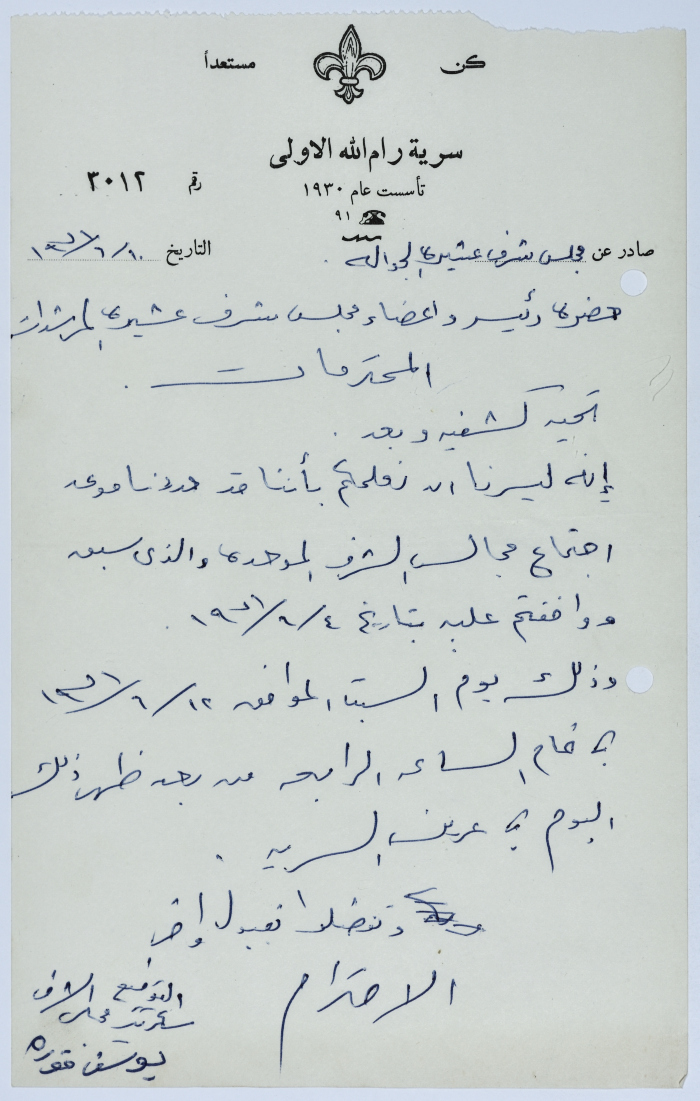 كن مستعداً
سرية رام الله الاولى
تأسست عام ١٩٣٠
رقم ٣٠١٢
٩١
صادر عن مجلس شرف عشيرة الجواله .
التاريخ ١٠/٦/
حضرة رئيس واعضاء مجلس شرف عشيرة المرشدات
المحترمات .
تحيه كشفيه وبعد .
إنه ليسرنا ان نعلمكم بأننا قد حددنا موعد
اجتماع مجالس الشرف الموحدة والذي سبق
ووافقتم عليه بتاريخ ٤/٦/
وذلك يوم السبت الموافق ١٢/٦/
في تمام الساعه الرابعه من بعد ظهر ذلك
اليوم في عرين السريه .
وتفضلوا بقبول وافر
الاحترام
التوقيع
سكرتير مجلس الشرف
يوسف قوره